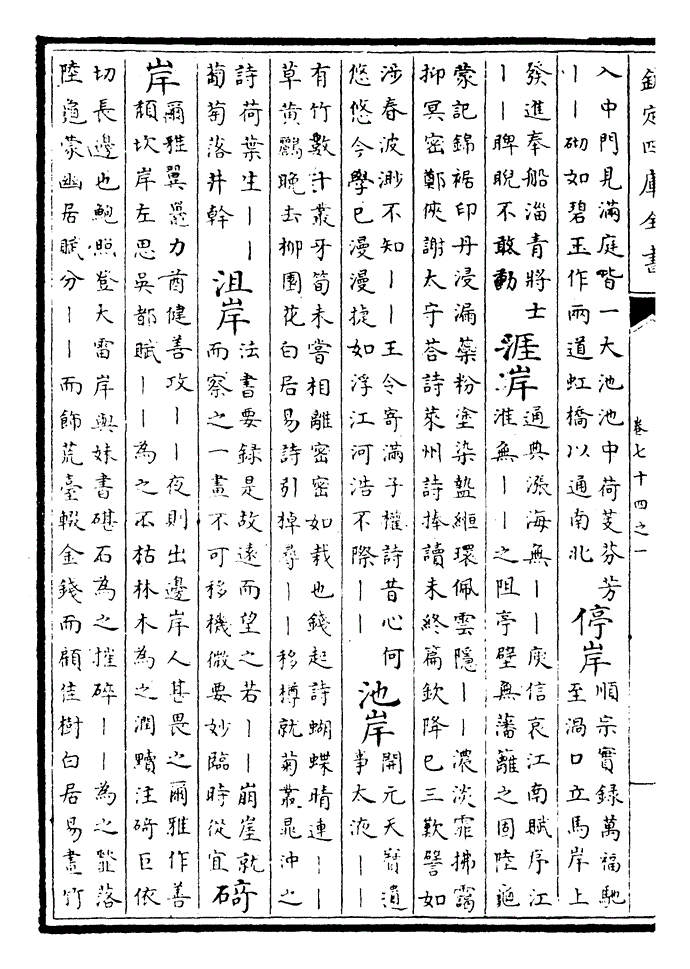 欽定四庫全書
卷七十四之一
入中門見滿庭皆一大池池中荷芰芬芳
丨丨砌如碧玉作兩道虹橋以通南北
停岸
順宗實録萬福馳
至渦口立馬岸上
發進奉船淄青將士
丨丨睥睨不敢動
涯岸
通典漲海無丨丨庾信哀江南賦序江
淮無丨丨之阻亭壁無藩籬之固陸龜
蒙記錦裾印丹浸漏藥粉塗染盭縆環佩雲隱丨丨濃淡霏拂靄
抑冥密鄭俠謝太守荅詩萊州詩捧讀未終篇欽降已三歎譬如
涉春波渺不知丨丨王令寄滿子權詩昔心何
悠悠今學已漫漫捷如浮江河浩不際丨丨
池岸
開元天寳遺
事太液丨丨
有竹數十叢牙筍未嘗相離密密如栽也錢起詩蝴蝶晴連丨丨
草黄鸝晚去柳園花白居易詩引棹尋丨丨移樽就菊叢晁沖之
詩荷葉生丨丨
蔔菊落井幹
沮岸
法書要録是故逺而望之若丨丨崩崖就
而察之一畫不可移機微要妙臨時從宜
碕岸
爾雅翼鼉力酋健善攻丨丨夜則出邊岸人甚畏之爾雅作善
頽坎岸左思吳都賦丨丨為之不枯林木為之潤黷注碕巨依
切長邊也鮑照登大雷岸與妹書碪石為之摧碎丨丨為之韲落
陸龜蒙幽居賦分丨丨而飾荒臺輟金錢而顧佳樹白居易畫竹